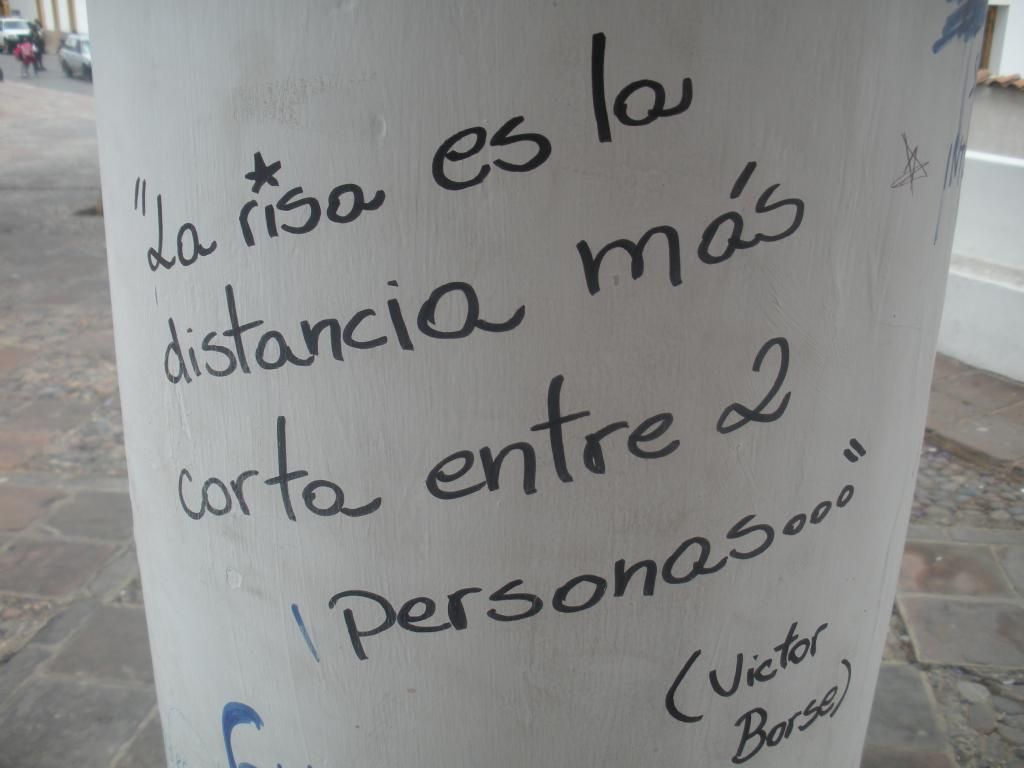 "La risa es la
distancia más
corta entre 2
personas..."
(Victor
Borse)